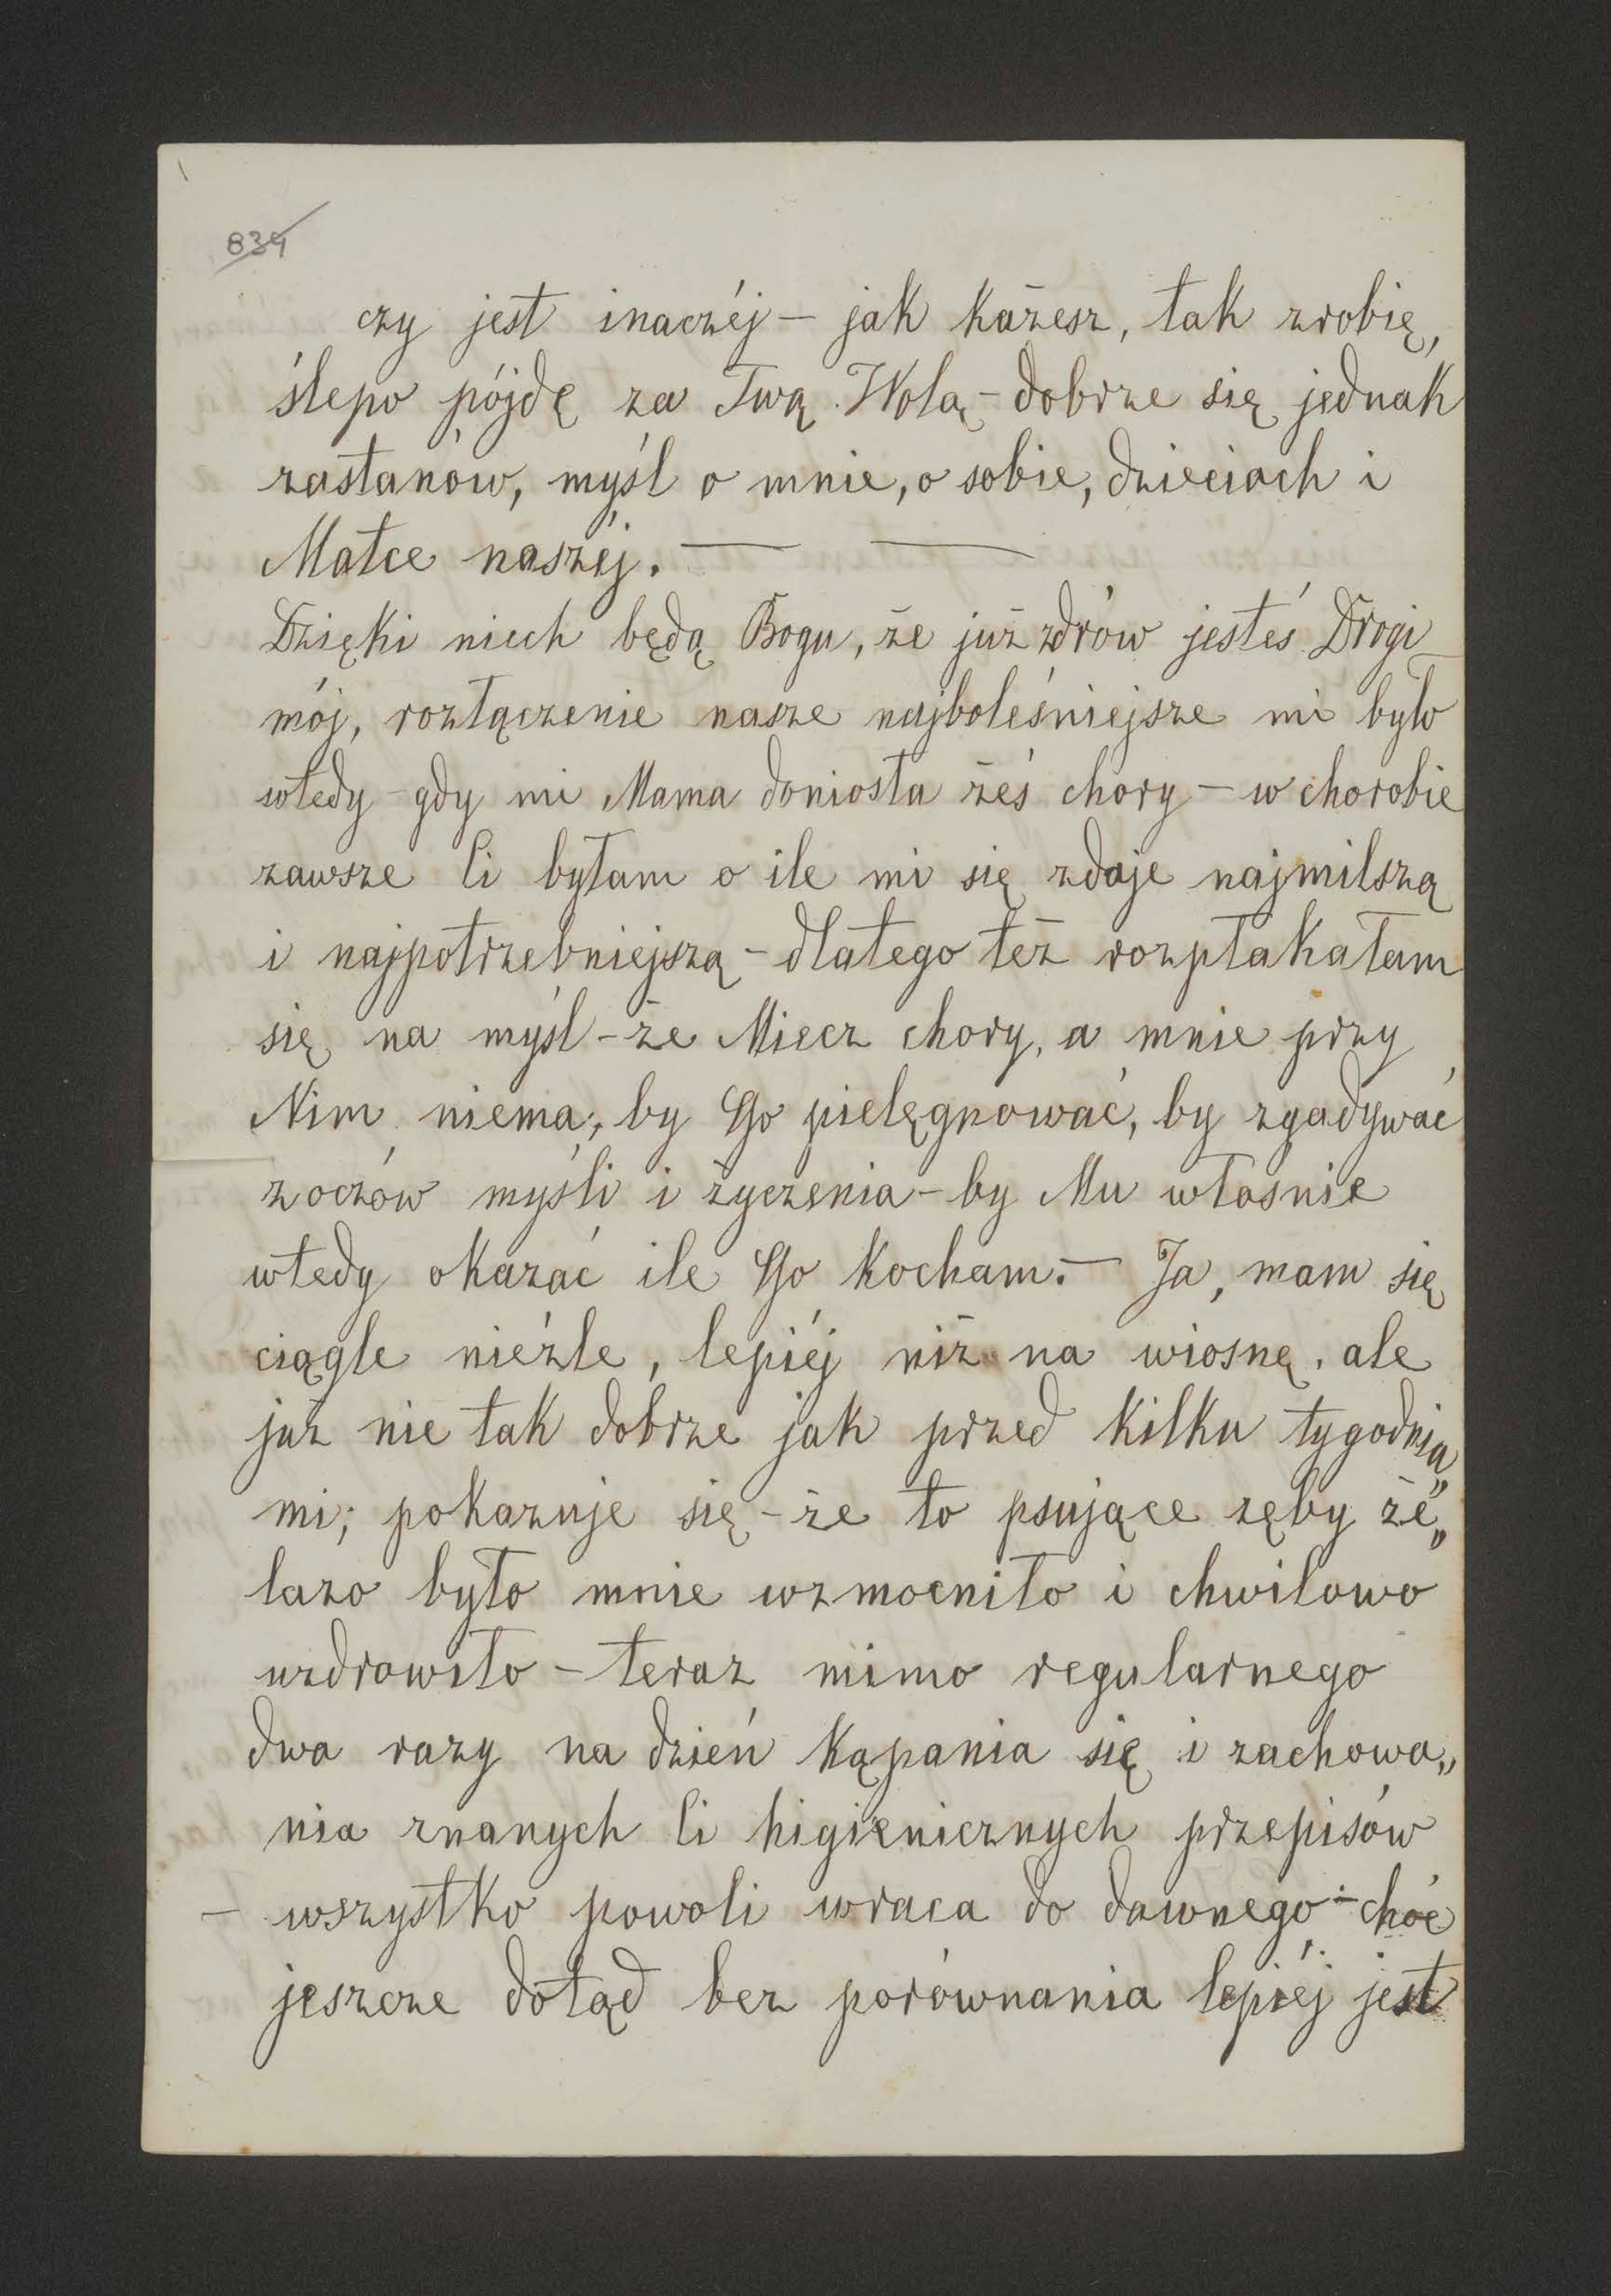 839
czy jest inaczéj – jak każesz, tak zrobię,
ślepo pójdę za Twą Wolą – dobrze się jednak
zastanów, myśl o mnie, o sobie, dzieciach i
Matce naszéj. — —
Dzięki niech będą Bogu, że już zdrów jesteś Drogi
mój, rozłączenie nasze najboleśniejsze mi było
wtedy – gdy mi Mama doniosła żeś chory – w chorobie
zawsze Ci byłam o ile mi się zdaje najmilszą
i najpotrzebniejszą – dlatego też rozpłakałam
się na myśl – że Miecz chory, a mnie przy
Nim niema, by Go pielęgnować, by zgadywać
z oczów myśli i życzenia – by Mu własnie
wtedy okazać ile Go kocham. – Ja, mam się
ciągle nieźle, lepiéj niż na wiosnę, ale
już nie tak dobrze jak przed kilku tygodnia„
mi; pokazuje się – że to psujące zęby że„
lazo było mnie wzmocniło i chwilowo
uzdrowiło – teraz mimo regularnego
dwa razy na dzień kąpania się i zachowa„
nia znanych Ci higienicznych przepisów
– wszystko powoli wraca do dawnego – choć
jeszcze dotąd bez porównania lepiéj jest